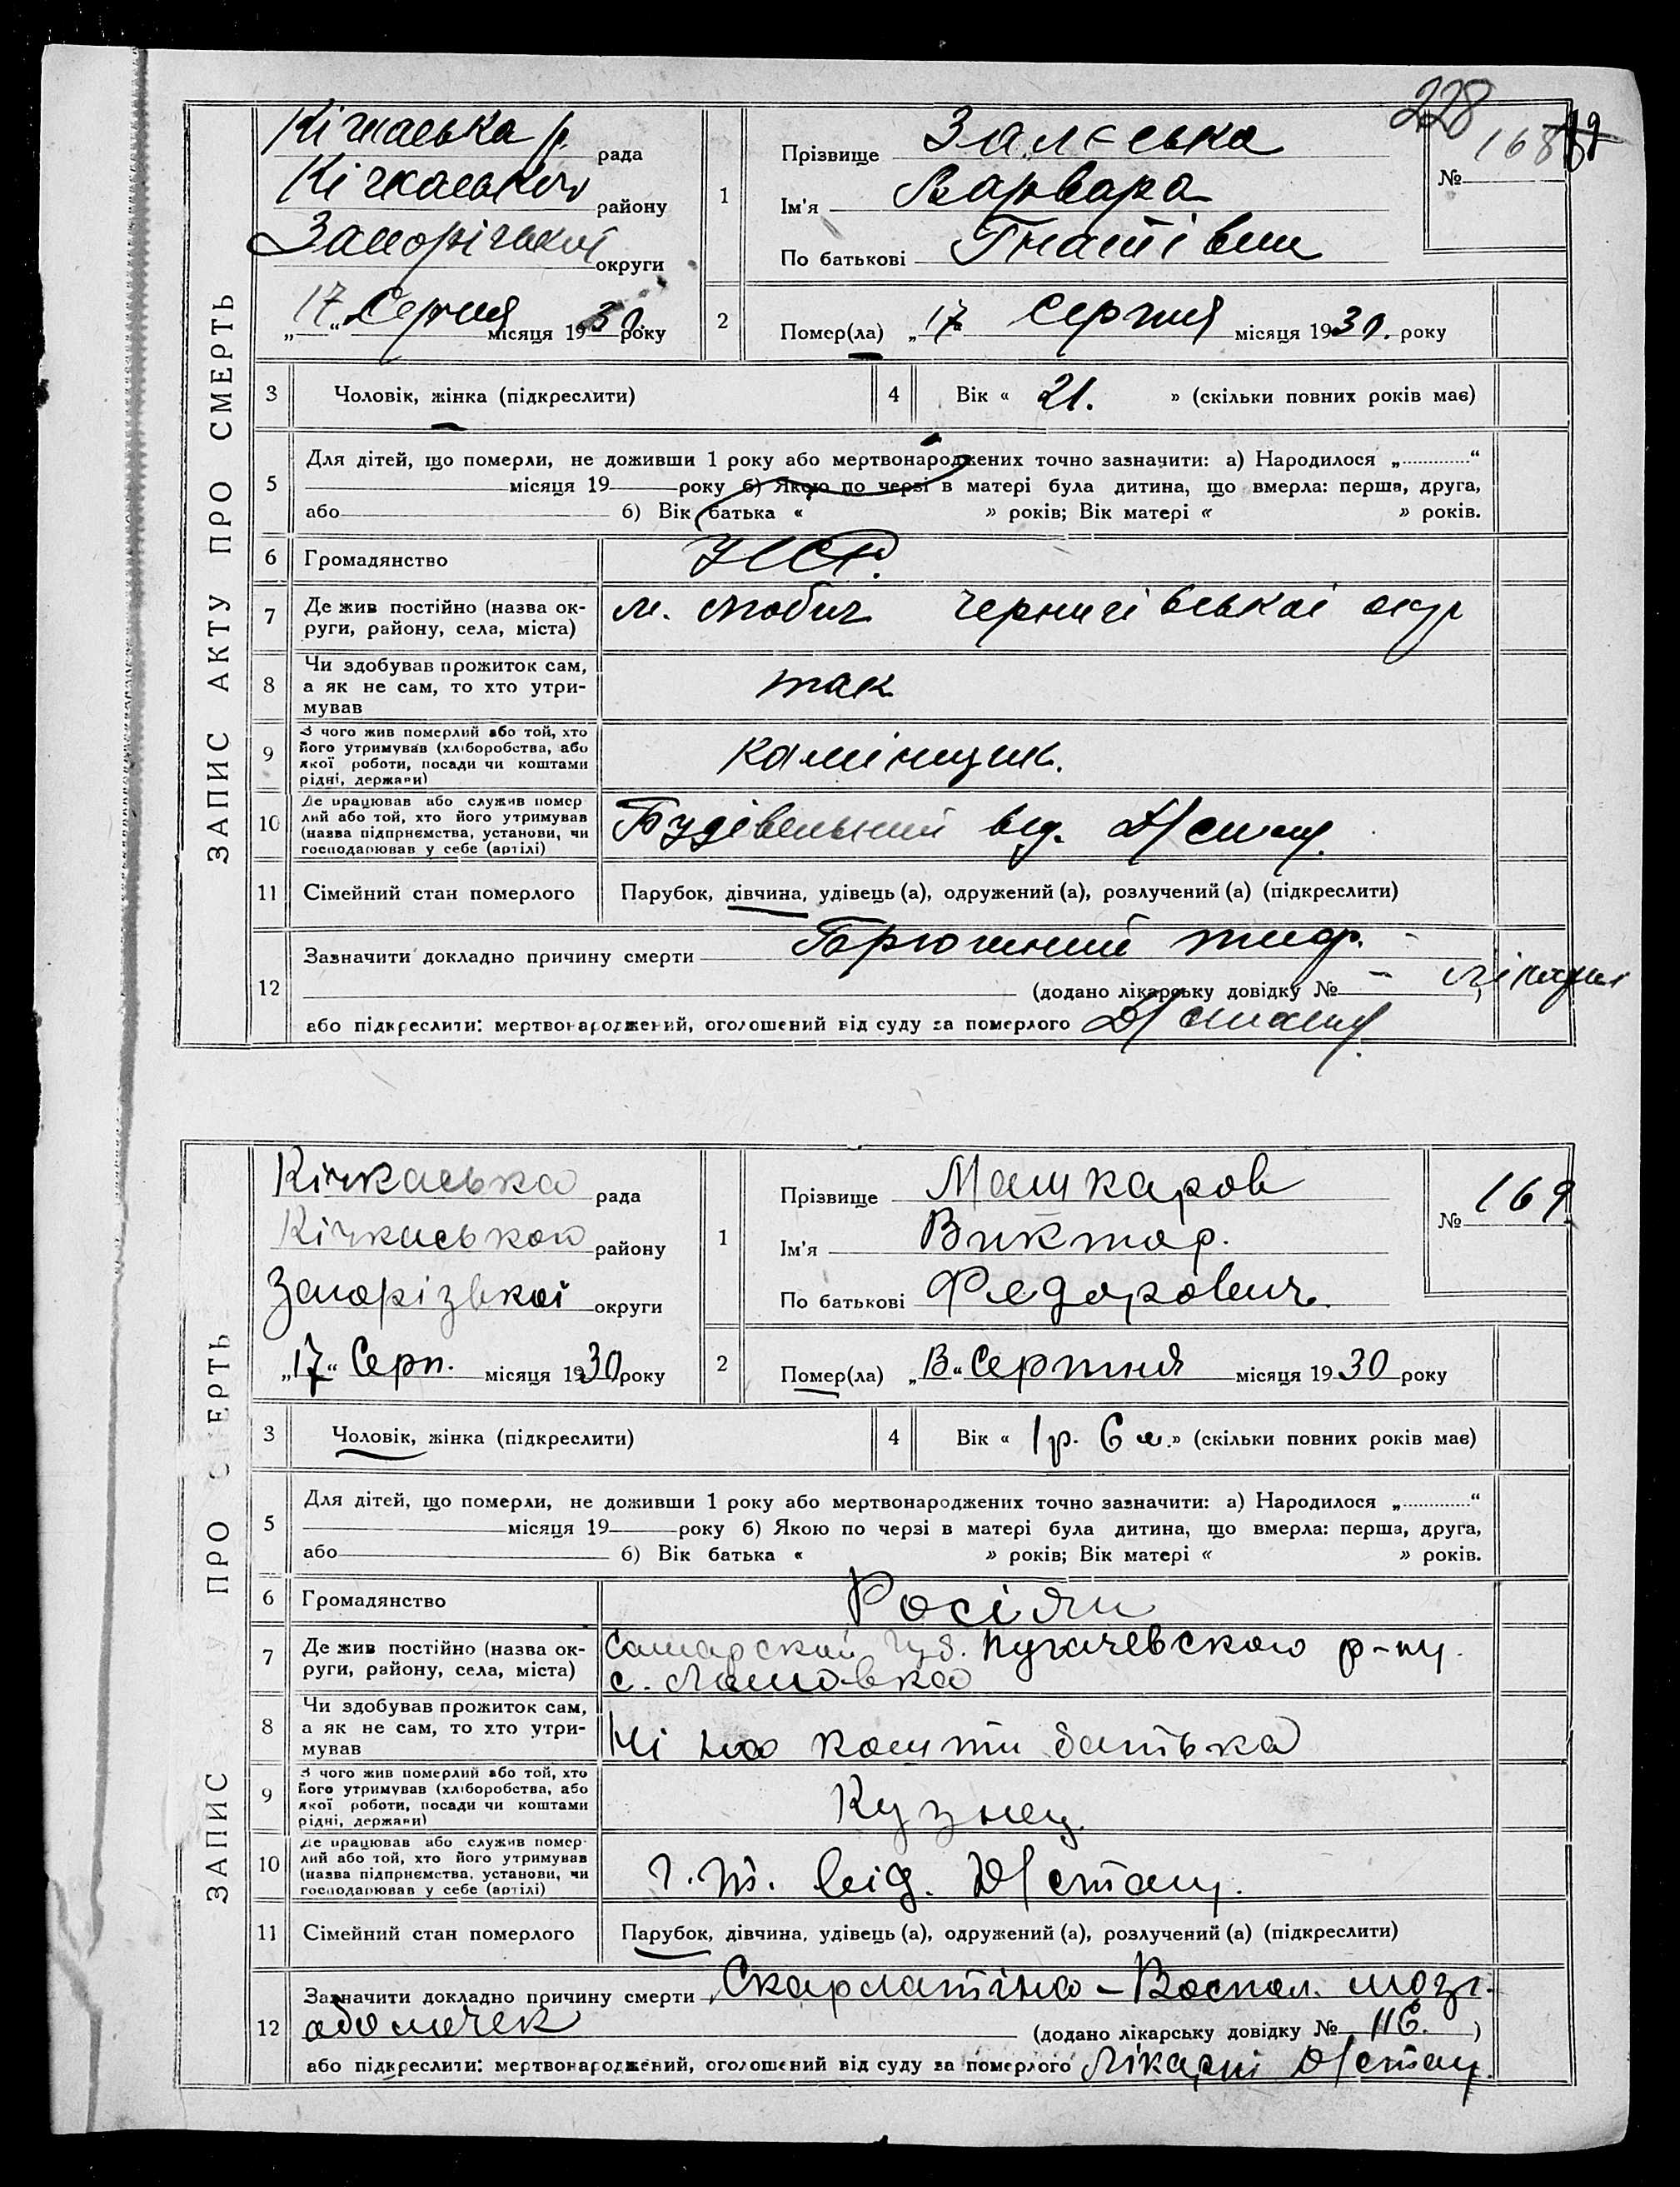 228
ЗАПИС АКТУ ПРО СМЕРТЬ
Кічкаська р. рада
Кічкаського району
Запорізької округи
„17“ Серпня місяця 1930 року
1
Прізвище Залєська
Ім'я Варвара
По батькові Гнатівна
№ 168
2
Помер(ла) „17 серпня місяця 1930. року
3 Чоловік, жінка (підкреслити)
4 Вік « 21. » (скільки повних років має)
5
Для дітей, що померли, не доживши 1 року або мертвонароджених точно зазначити: а) Народилося „............“
місяця 19 року б) Якою по черзі в матері була дитина, що вмерла: перша, друга,
або б) Вік батька « » років; Вік матері « » років.
6 Громадянство УССР.
7 Де жив постійно (назва ок-
руги, району, села, міста)
м. Любич Чернигівськаі окр
8 Чи здобував прожиток сам,
а як не сам, то хто утри-
мував
так
9 З чого жив померлий або той, хто
його утримував (хліборобства, або
якої роботи, посади чи коштами
рідні, держави)
камінщик.
10 Де працював або служив помер-
лий або той, хто його утримував
(назва підприємства, установи, чи
господарював у себе (артілі)
Будівельний від. Д/стану.
11 Сімейний стан померлого Парубок, дівчина, удівець (а), одружений (а), розлучений (а) (підкреслити)
12
Зазначити докладно причину смерти Брюшний тиф. -
(додано лікарську довідку № - ) лікарні
або підкреслити: мертвонароджений, оголошений від суду за померлого Д/стану.
ЗАПИС ПРО СМЕРТЬ
Кічкаська рада
Кічкаського району
Запорізькоі округи
„17“ Серп. місяця 1930 року
1
Прізвище Машкаров
Ім'я Виктор.
По батькові Федорович.
№ 169.
2
Помер(ла) „13“ Серпня місяця 1930 року
3 Чоловік, жінка (підкреслити)
4 Вік « 1 р. 6 м. » (скільки повних років має)
5
Для дітей, що померли, не доживши 1 року або мертвонароджених точно зазначити: а) Народилося „............“
місяця 19 року б) Якою по черзі в матері була дитина, що вмерла: перша, друга,
або б) Вік батька « » років; Вік матері « » років.
6 Громадянство Росіян
7 Де жив постійно (назва ок-
руги, району, села, міста)
Самарской губ. Пугачевского р-ну.
с.
8 Чи здобував прожиток сам,
а як не сам, то хто утри-
мував
Ні на кошти батька
9 З чого жив померлий або той, хто
його утримував (хліборобства, або
якої роботи, посади чи коштами
рідні, держави)
Кузнец.
10 Де працював або служив помер-
лий або той, хто його утримував
(назва підприємства, установи, чи
господарював у себе (артілі)
г. т. від. Д/стану.
11 Сімейний стан померлого Парубок, дівчина, удівець (а), одружений (а), розлучений (а) (підкреслити)
12
Зазначити докладно причину смерти Скарлатіна - Воспал. мозг.
оболочек (додано лікарську довідку № 116. )
або підкреслити: мертвонароджений, оголошений від суду за померлого Лікарні Д/стану.